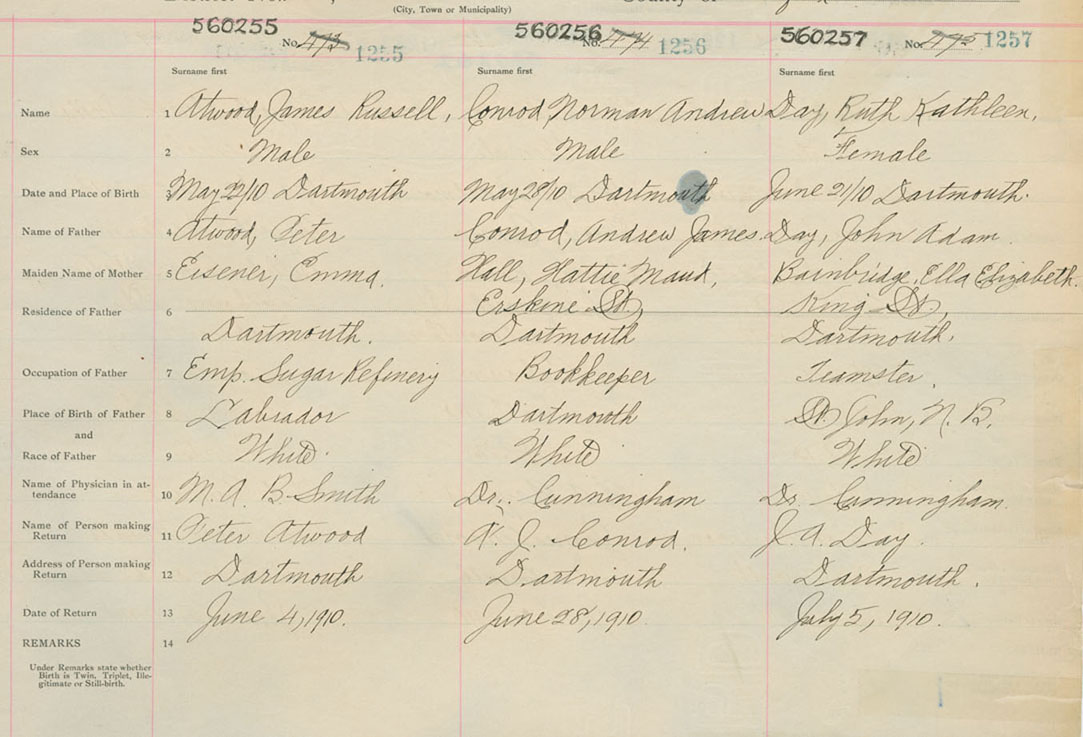 (City, Town or Municipality)
560255 560256 560257
No. 473 1255 No. 474 1256 No. 475 1257
Surname first Surname first Surname first
Name 1 Atwood, James Russell, Conrod Norman Andrew Day, Ruth Kathleen,
Sex 2 Male Male Female
Date and Place of Birth 3 May 22/10 Dartmouth May 28/10 Dartmouth June 21/10 Dartmouth.
Name of Father 4 Atwood, Peter Conrod, Andrew James. Day, John Adam.
Maiden Name of Mother 5 Eisener, Emma. Hall, Hattie Maud, Bainbridge, Ella Elizabeth.
Erskine St, King St,
Residence of Father 6
Dartmouth. Dartmouth Dartmouth.
Occupation of Father 7 Emp. Sugar Refinery Bookkeeper Teamster.
Place of Birth of Father 8 Labrador Dartmouth St. John, N. B.
and
Race of Father 9 White. White White
Name of Physician in at-
tendance 10 M. A. B. Smith Dr. Cunningham Dr. Cunningham.
Name of Person making
Return 11 Peter Atwood A. J. Conrod. J. A. Day.
Address of Person making
Return 12 Dartmouth Dartmouth Dartmouth.
Date of Return 13 June 4, 1910. June 28, 1910. July 5, 1910.
REMARKS 14
Under Remarks state whether
Birth is Twin, Triplet, Ille-
gitimate or Still-birth.